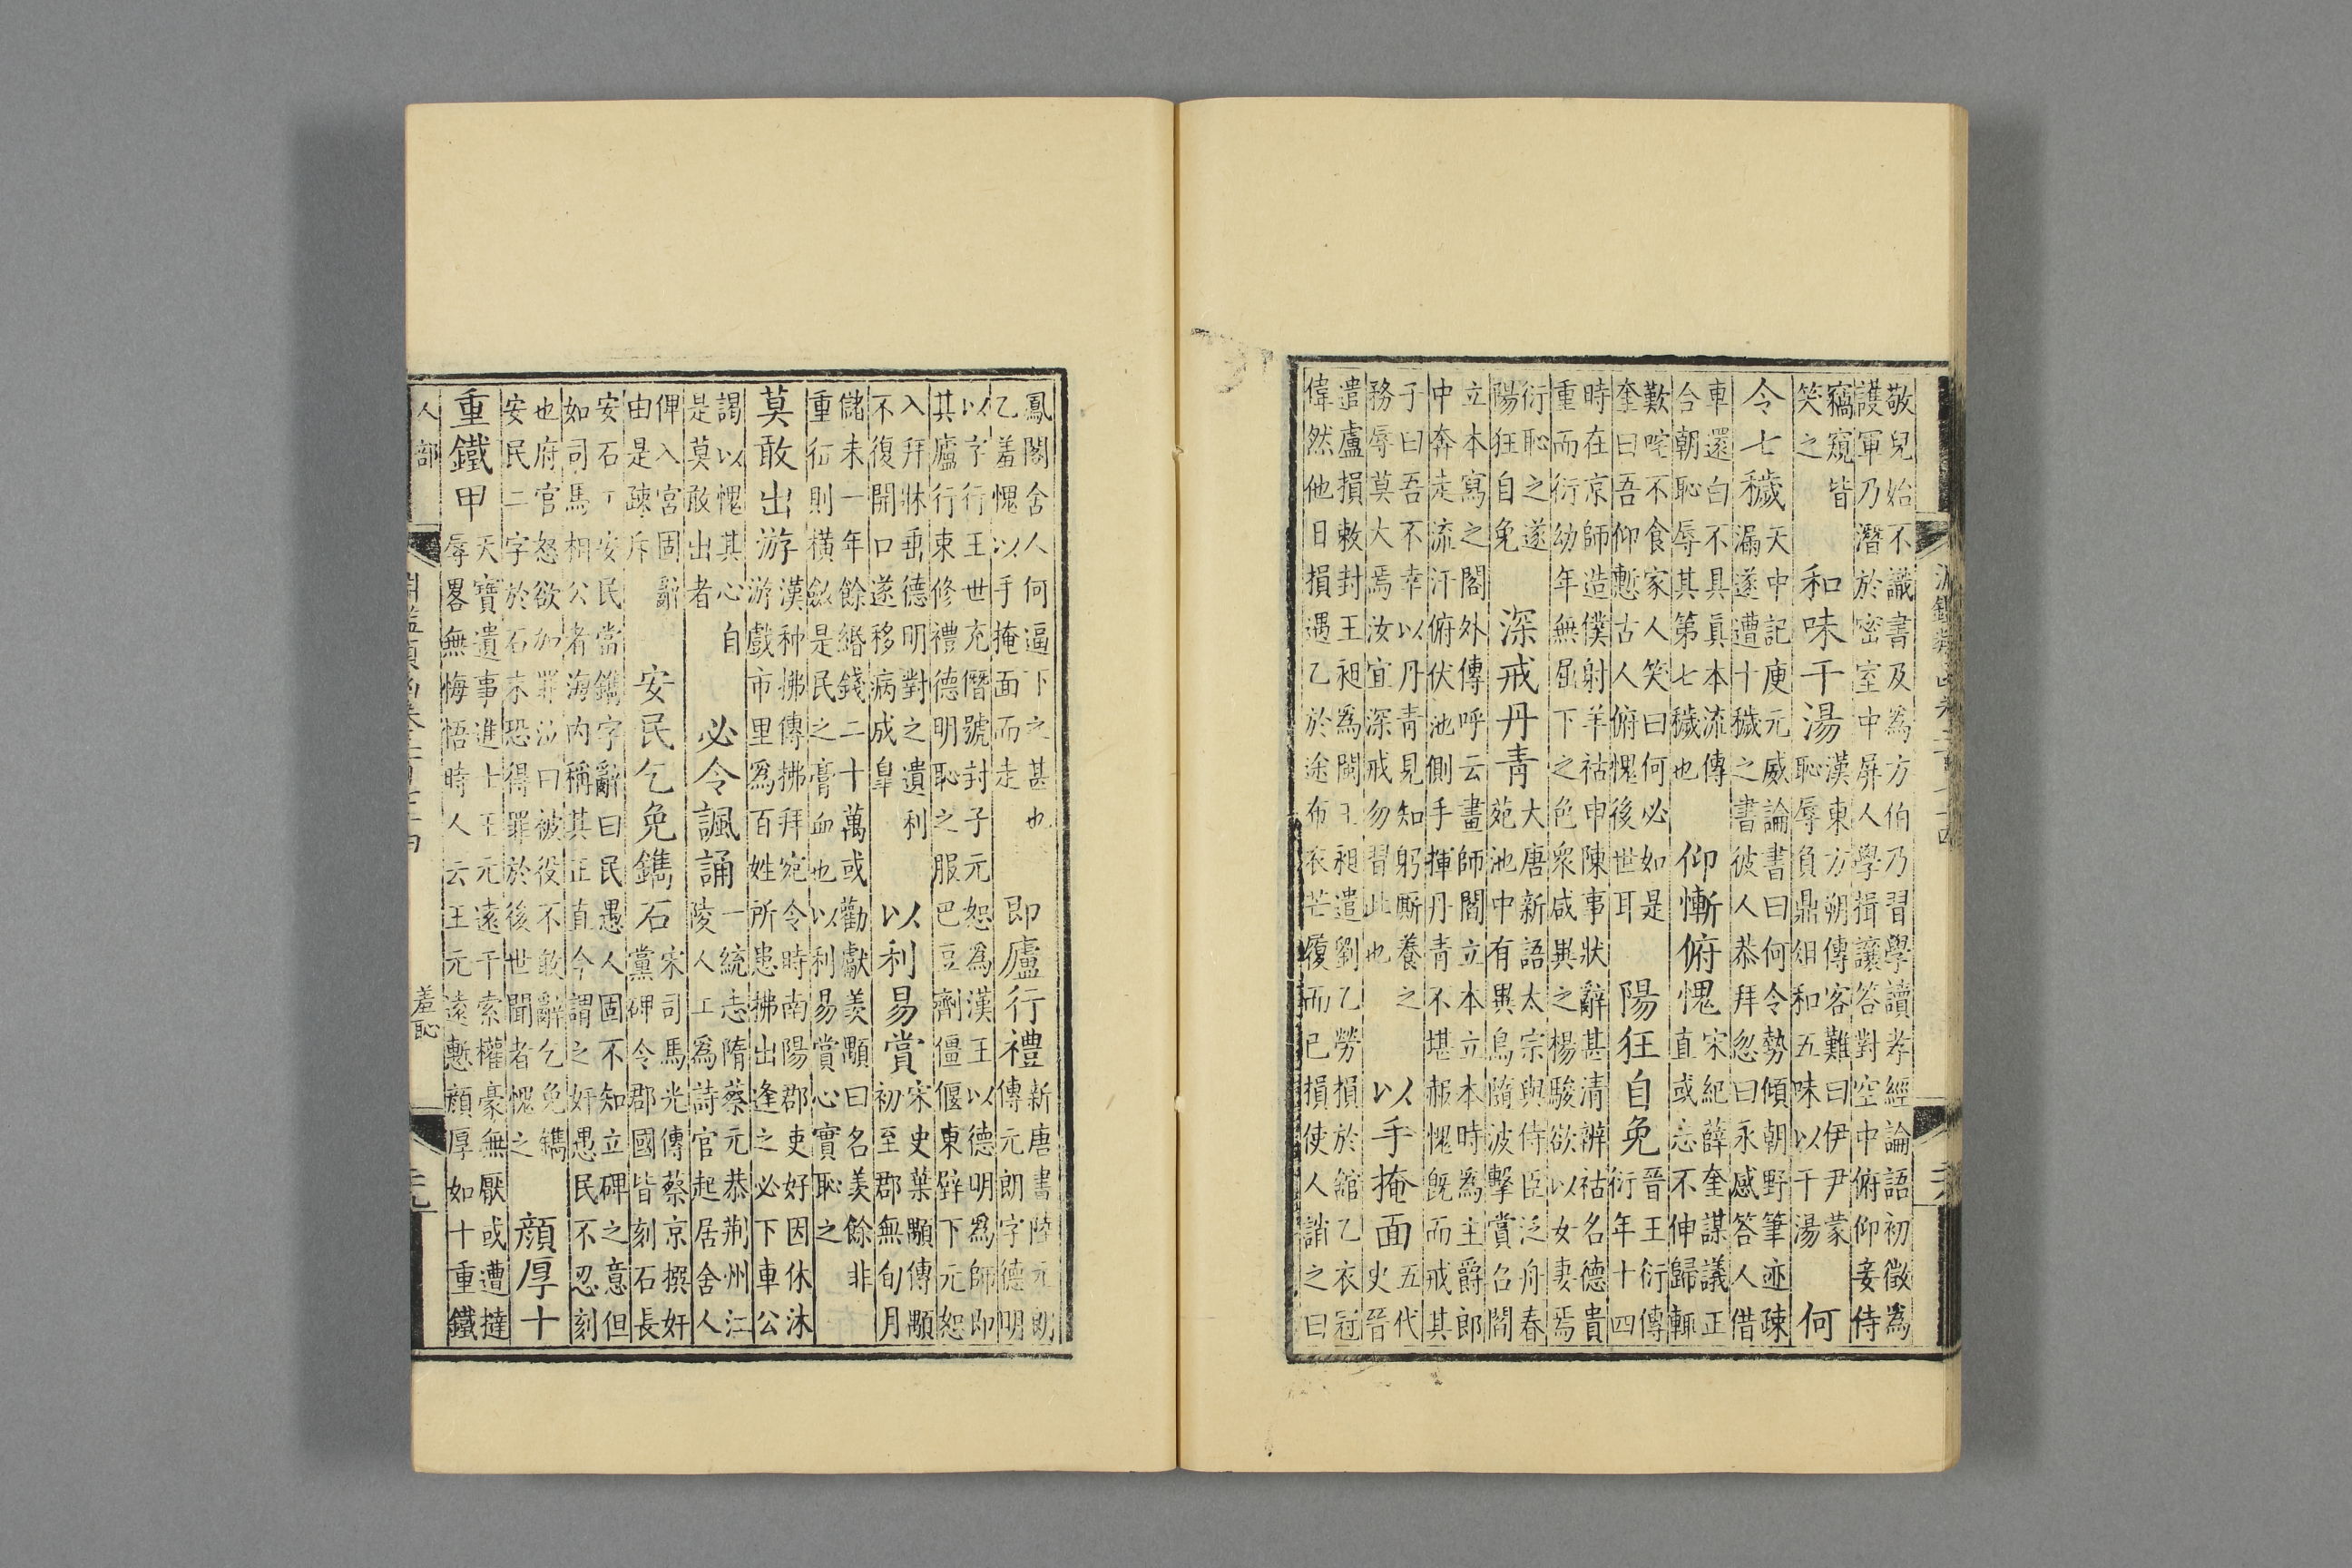 敬兒始不識書及為方伯乃習學讀孝經論語初徵為
護軍乃潛於密室中屏人學揖讓答對空中俯仰妾侍
竊窺皆
笑之
和味干湯
漢東方朔傳客難曰伊尹蒙
恥辱負鼎俎和五味以干湯
何
令七穢
天中記庾元威論書曰何令勢傾朝野筆迹疎
漏遂遭十穢之書彼人恭拜忽曰永感答人借
車還白不具真本流傳
合朝恥辱其第七穢也
仰慚俯愧
宋紀薛奎謀議正
直或志不伸歸輒
歎咤不食家人笑曰何必如是
奎曰吾仰慙古人俯愧後世耳
陽狂自免
晉王衍傳
衍年十四
時在京師造僕射羊祜申陳事狀辭甚清辨祜名德貴
重而衍幼年無屈下之色眾咸異之楊駿欲以女妻焉
衍恥之遂
陽狂自免
深戒丹青
大唐新語太宗與侍臣泛舟春
苑池中有異鳥隨波擊賞召閻
立本寫之閣外傳呼云畫師閻立本立本時為主爵郎
中奔走流汗俯伏池側手揮丹青不堪赧愧既而戒其
子曰吾不幸以丹青見知躬廝養之
務辱莫大焉汝宜深戒勿習此也
以手掩面
五代
史晉
遣盧損敕封王昶為閩王昶遣劉乙勞損於館乙衣冠
偉然他日損遇乙於途布衣芒履而已損使人誚之曰
鳳閣舍人何逼下之甚也
乙羞愧以手掩面而走
即廬行禮
新唐書陸元朗
傳元朗字德明
以字行王世充僭號封子元恕為漢王以德明為師即
其廬行束修禮德明恥之服巴豆劑僵偃東壁下元恕
入拜牀垂德明對之遺利
不復開口遂移病成皐
以利易賞
宋史葉顒傳顒
初至郡無旬月
儲未一年餘緡錢二十萬或勸獻羨顒曰名羨餘非
重征則橫斂是民之膏血也以利易賞心實恥之
莫敢出游
漢种拂傳拂拜宛令時南陽郡吏好因休沐
游戲市里為百姓所患拂出逢之必下車公
謁以愧其心自
是莫敢出者
必令諷誦
一統志隋蔡元恭荆州江
陵人工為詩官起居舍人
俾入宮固辭
由是疎斥
安民乞免鐫石
宋司馬光傳蔡京撰奸
黨碑令郡國皆刻石長
安石工安民當鐫字辭曰民愚人固不知立碑之意但
如司馬相公者海內稱其正直今謂之奸愚民不忍刻
也府官怒欲加罪泣曰被役不敢辭乞免鐫
安民二字於石末恐得罪於後世聞者愧之
顏厚十
重鐵甲
天寶遺事進士王元遠干索權豪無厭或遭撻
辱畧無悔悟時人云王元遠慙顏厚如十重鐵
人部
羞恥